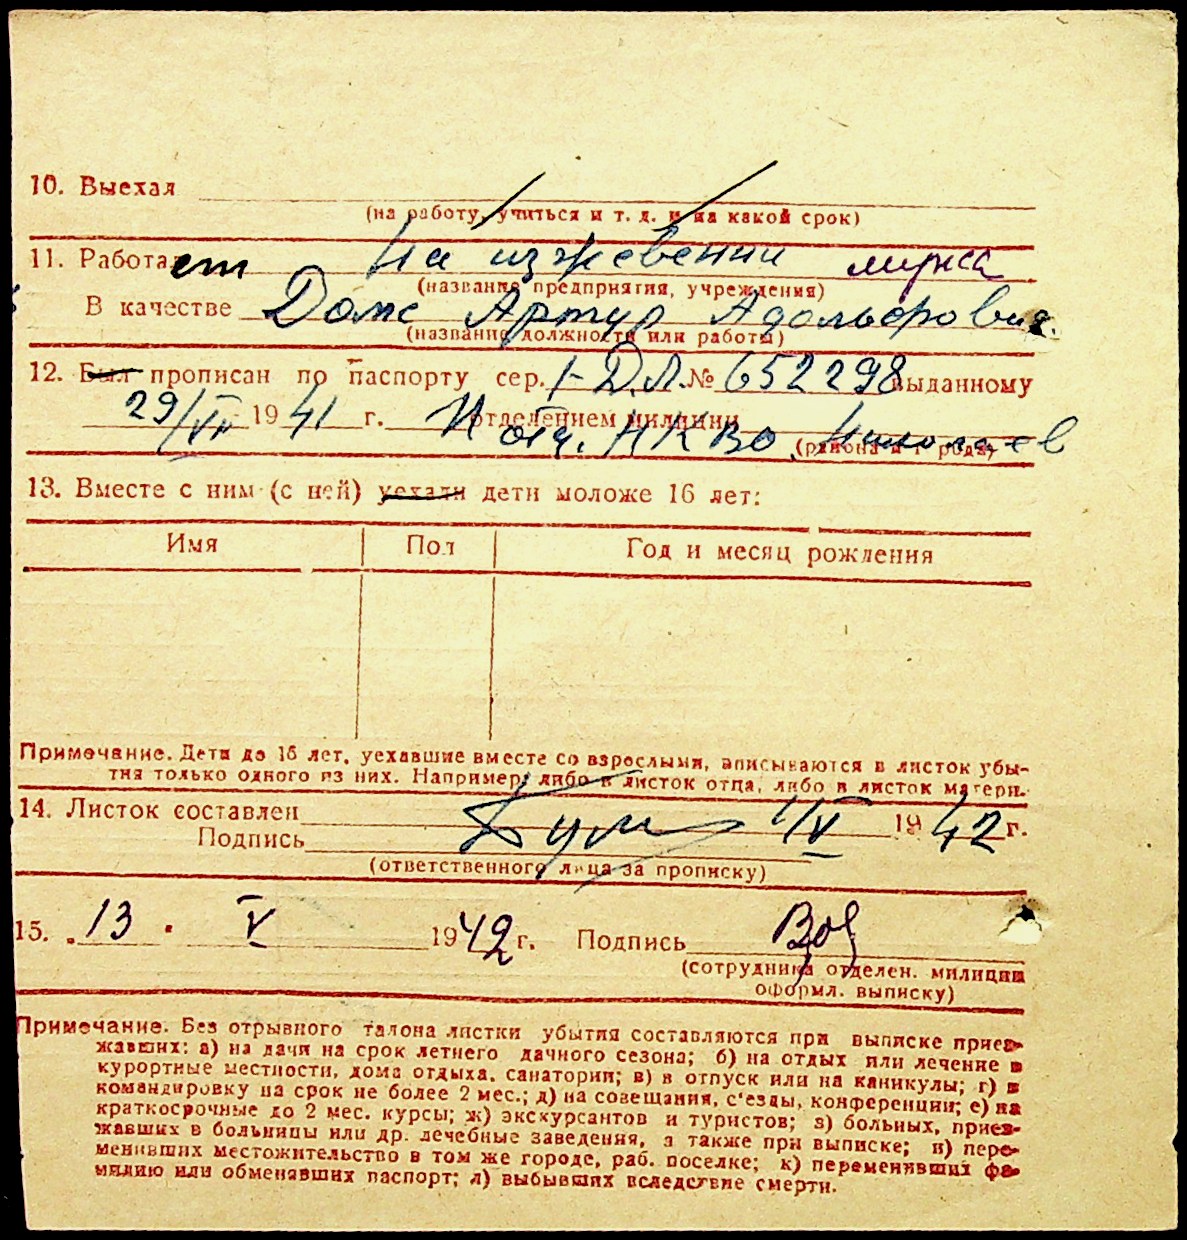 10. Выехал
(на работу, учиться и т. д. и на какой срок)
11. Работает На иждевении мужа
(название предприятия, учреждения)
В качестве Домс Артур Адольфович.
(название должности или работы)
12. Был прописан по паспорту сер. I-ДЛ № 652298 выданному
29/VII 1941 г. отделением милиции И отд. НКВД Николаев
(района и города)
13. Вместе с ним (с ней) уехали дети моложе 16 лет:
Имя Пол Год и месяц рождения
Примечание. Дети до 16 лет, уехавшие вместе со взрослыми, вписываются в листок убы-
тия только одного из них. Например, либо в листок отца, либо в листок матери.
14. Листок составлен 1/V 1942 г.
Подпись
(ответственного лица за прописку)
15. 13 V 1942 г. Подпись
(сотрудника отделен. милиции
оформл. выписку)
Примечание. Без отрывного талона листки убытия составляются при выписке приез-
жавших: а) на дачи на срок летнего дачного сезона; б) на отдых или лечение в
курортные местности, дома отдыха, санатории; в) в отпуск или на каникулы; г) в
командировку на срок не более 2 мес.; д) на совещания, с'езды, конференции; е) на
краткосрочные до 2 мес. курсы; ж) экскурсантов и туристов; з) больных, приез-
жавших в больницы или др. лечебные заведения, а также при выписке; и) пере-
менивших местожительство в том же городе, раб. поселке; к) переменивших фа-
милию или обменявших паспорт; л) выбывших вследствие смерти.